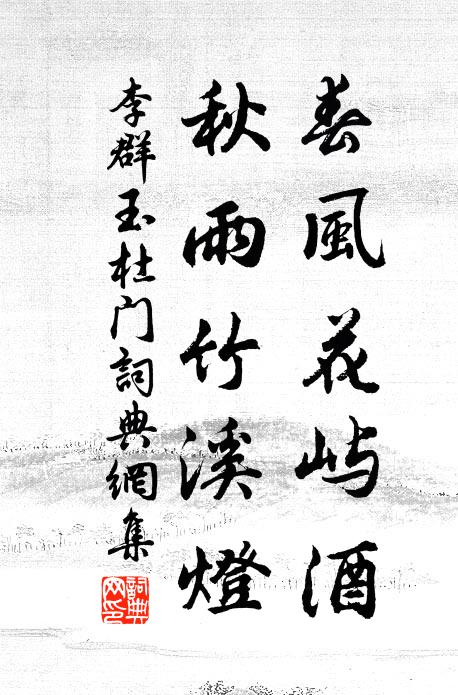 春風花屿酒
秋雨竹溪燈
李群玉杜門詞典網集
詞典網印